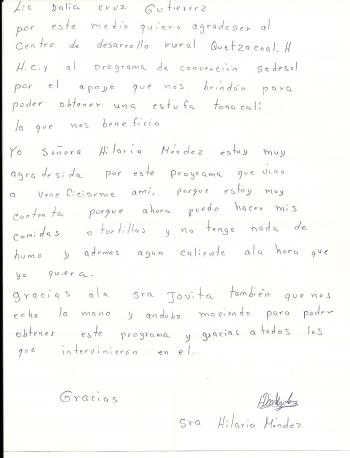 Lic Dalia cruz Gutierrez
por este medio quiero agradeser al
Centro de desarrollo rural Quetzacoal. H
H.c.y al programa de convención sedesol
por el apoyo que nos brindan para
poder obtener una estufa tonacali
lo que nos beneficio
Yo Señora Hilaria Méndez estoy muy
agradesida por este programa que vino
a veneficiarme ami, porque estoy muy
contenta porque ahora puedo hacer mis
comidas o tortillas y no tengo nada de
humo y ademas agua caliente ala hora que
yo quiera.
gracias ala sra Jovita también que nos
echo la mano y andobo moviendo para poder
obtener este programa y gracias a todos los
que intervinieron en el.
Gracias
Sra Hilaria Méndez